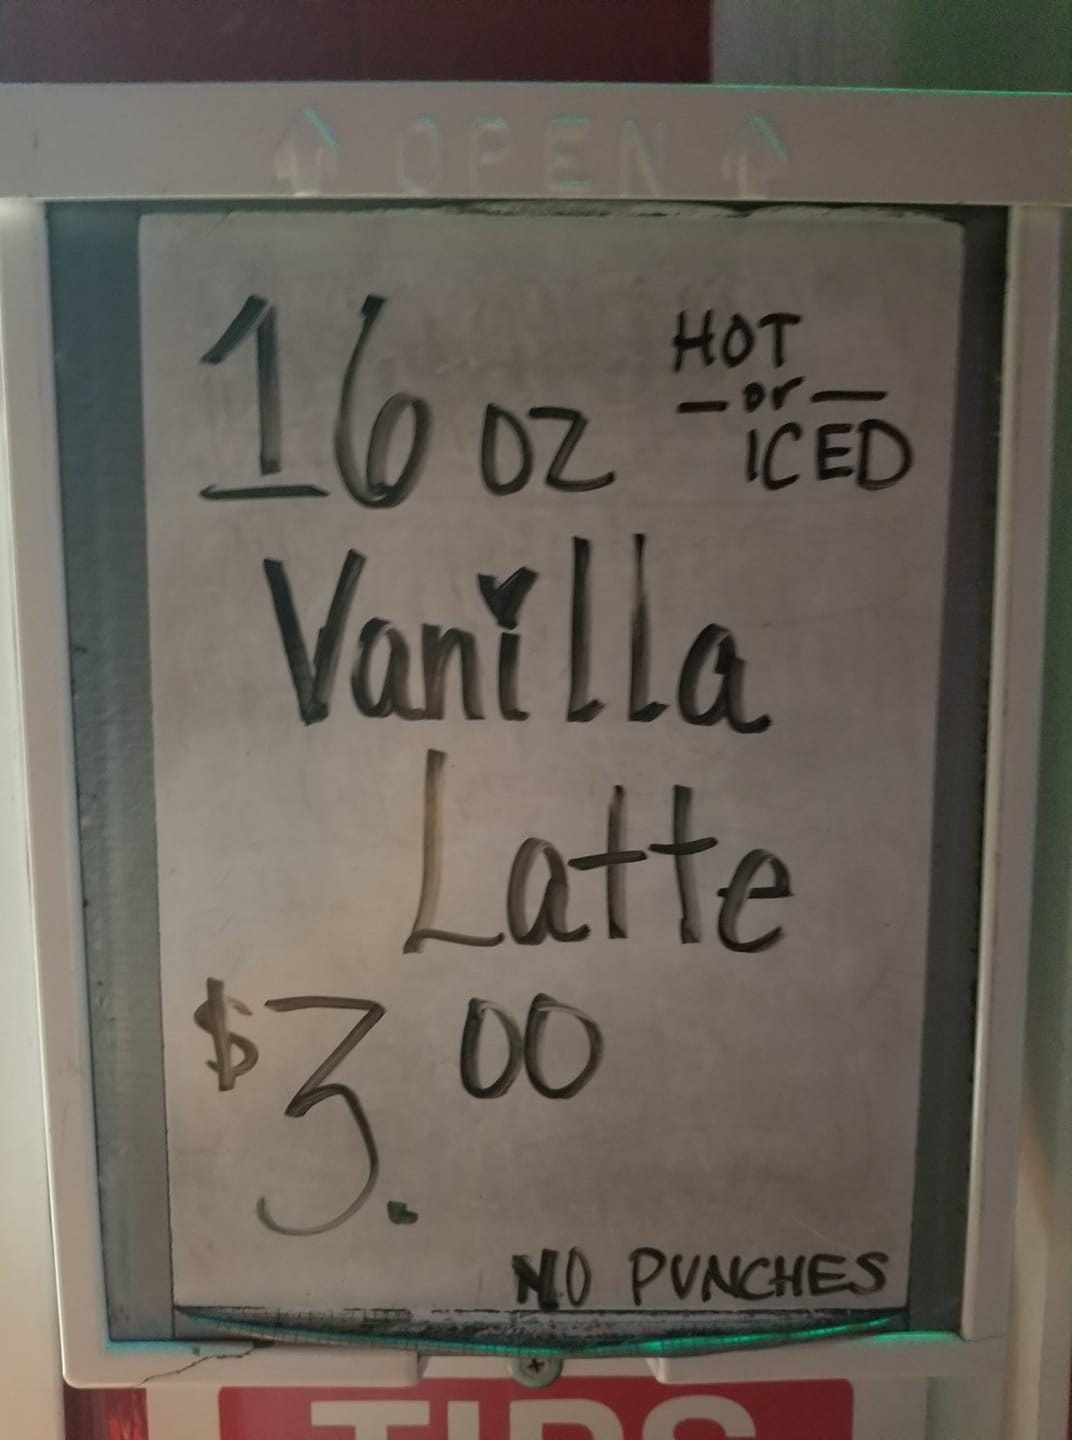 OPEN
16 oz HOT
- or -
ICED
Vanilla
Latte
$3.00
NO PUNCHES
TIPS